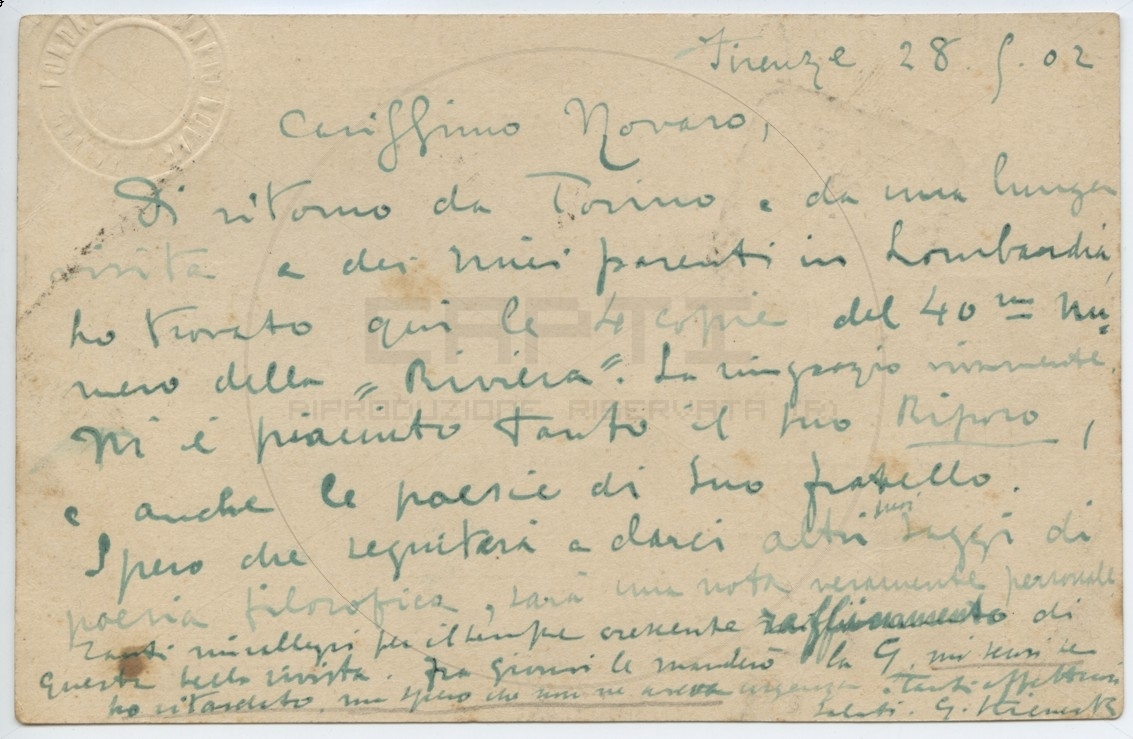 Firenze 28.5.02
Carissimo Novaro,
Di ritorno da Torino e da una lunga
visita a dei miei parenti in Lombardia,
ho trovato qui le 4 copie del 40mo nu=
mero della "Riviera". La ringrazio vivamente.
Mi è piaciuto tanto il suo Riposo,
e anche le poesie di suo fratello.
Spero che seguiterà a darci altri suoi saggi di
poesia filosofica, sarà una nota veramente personale
Tanti mirallegri per il sempre crescente raffinamento di
questa bella rivista. Fra giorni le manderò la G. mi scusi se
ho ritardato, ma spero che non ne aveva urgenza. Tanti affettuosi
saluti. G.
CAPTI
RIPRODUZIONE RISERVATA